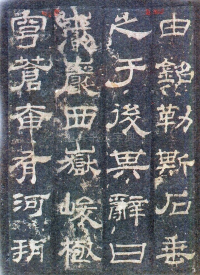 由銘勒斯石垂
之于後其辭曰
巖巖西嶽峻極
穹蒼奄有河朔